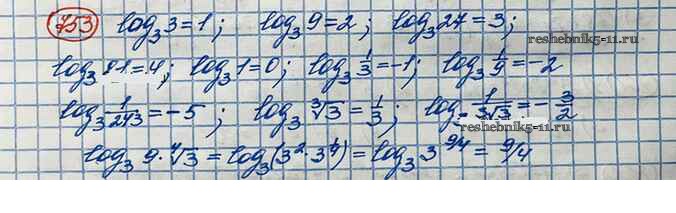 753 log₃3=1; log₃9=2; log₃27=3;
reshebnik5-11.ru
log₃81=4; log₃1=0; log₃ 1/3=-1; log₃ 1/9=-2
log₃ 1/243=-5; log₃ ∛3=1/3; log₃ 1/(3√3)=-3/2
reshebnik5-11.ru
log₃ 9·∜3=log₃(3²·3^(1/4))=log₃ 3^(9/4)=9/4